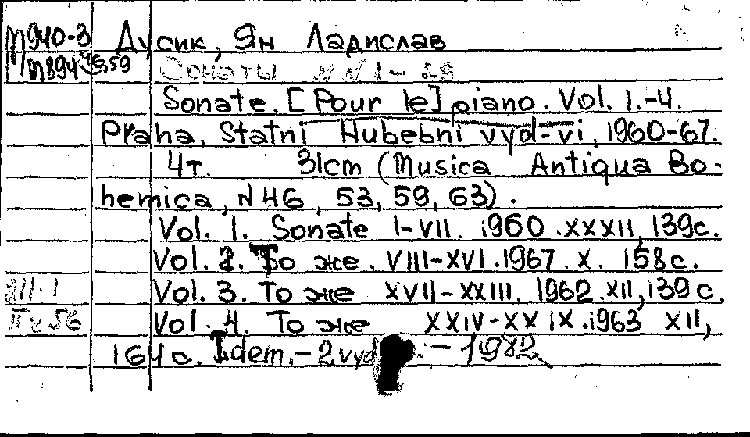 М940-3 Дусик, Ян Ладислав
М894 Сонаты NN 1-29
59
Sonate. [Pour le] piano. Vol. 1.-4.
Praha, Statni Hubebni vyd-vi, 1960-67.
4т. 31cm (Musica Antiqua Bo-
hemica, N 46, 53, 59, 63).
Vol. 1. Sonate I-VII. 1960. XXXII, 139c.
Vol. 2. То же. VIII-XVI. 1967. X. 158c.
Vol. 3. То же XVII-XXIII. 1962. XII, 139c.
Vol. 4. То же XXIV-XXIX. 1963 XII,
164c. Idem. - 2 vyd. - 1982